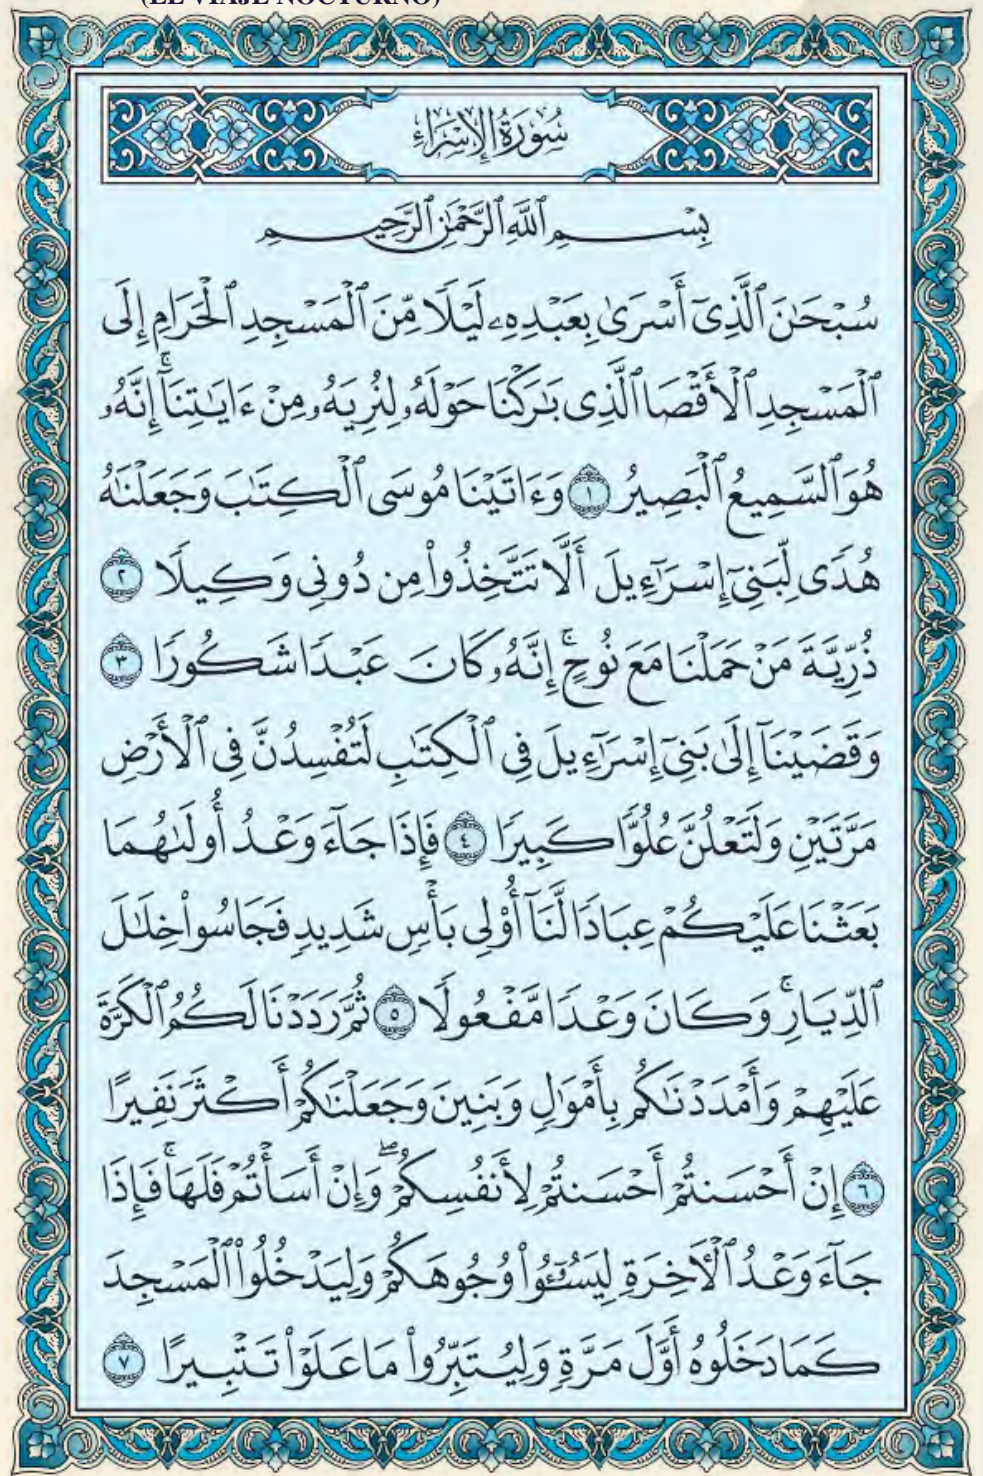 (EL VIAJE NOCTURNO)
سُورَةُ الإِسْرَاءِ
بِسْمِ ٱللَّهِ ٱلرَّحْمَٰنِ ٱلرَّحِيمِ
سُبْحَٰنَ ٱلَّذِىٓ أَسْرَىٰ بِعَبْدِهِۦ لَيْلًا مِّنَ ٱلْمَسْجِدِ ٱلْحَرَامِ إِلَى
ٱلْمَسْجِدِ ٱلْأَقْصَا ٱلَّذِى بَٰرَكْنَا حَوْلَهُۥ لِنُرِيَهُۥ مِنْ ءَايَٰتِنَآ ۚ إِنَّهُۥ
هُوَ ٱلسَّمِيعُ ٱلْبَصِيرُ ١ وَءَاتَيْنَا مُوسَى ٱلْكِتَٰبَ وَجَعَلْنَٰهُ
هُدًى لِّبَنِىٓ إِسْرَٰٓءِيلَ أَلَّا تَتَّخِذُوا۟ مِن دُونِى وَكِيلًا ٢
ذُرِّيَّةَ مَنْ حَمَلْنَا مَعَ نُوحٍ ۚ إِنَّهُۥ كَانَ عَبْدًا شَكُورًا ٣
وَقَضَيْنَآ إِلَىٰ بَنِىٓ إِسْرَٰٓءِيلَ فِى ٱلْكِتَٰبِ لَتُفْسِدُنَّ فِى ٱلْأَرْضِ
مَرَّتَيْنِ وَلَتَعْلُنَّ عُلُوًّا كَبِيرًا ٤ فَإِذَا جَآءَ وَعْدُ أُولَىٰهُمَا
بَعَثْنَا عَلَيْكُمْ عِبَادًا لَّنَآ أُو۟لِى بَأْسٍ شَدِيدٍ فَجَاسُوا۟ خِلَٰلَ
ٱلدِّيَارِ ۚ وَكَانَ وَعْدًا مَّفْعُولًا ٥ ثُمَّ رَدَدْنَا لَكُمُ ٱلْكَرَّةَ
عَلَيْهِمْ وَأَمْدَدْنَٰكُم بِأَمْوَٰلٍ وَبَنِينَ وَجَعَلْنَٰكُمْ أَكْثَرَ نَفِيرًا
٦ إِنْ أَحْسَنتُمْ أَحْسَنتُمْ لِأَنفُسِكُمْ ۖ وَإِنْ أَسَأْتُمْ فَلَهَا ۚ فَإِذَا
جَآءَ وَعْدُ ٱلْـَٔاخِرَةِ لِيَسُۥٓـُٔوا۟ وُجُوهَكُمْ وَلِيَدْخُلُوا۟ ٱلْمَسْجِدَ
كَمَا دَخَلُوهُ أَوَّلَ مَرَّةٍ وَلِيُتَبِّرُوا۟ مَا عَلَوْا۟ تَتْبِيرًا ٧